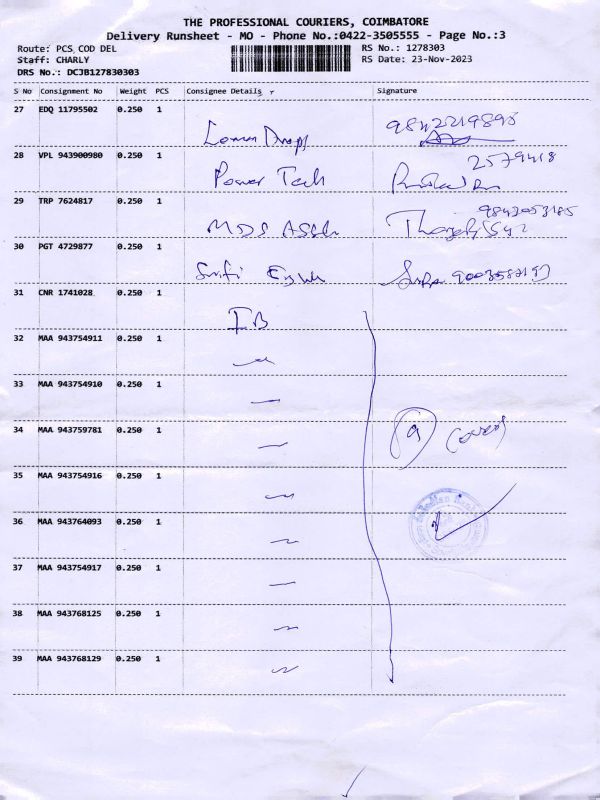 THE PROFESSIONAL COURIERS, COIMBATORE
Delivery Runsheet - MO - Phone No.:0422-3505555 - Page No.:3
Route: PCS, COD DEL RS No.: 1278303
Staff: CHARLY RS Date: 23-Nov-2023
DRS No.: DCJB127830303
S No Consignment No Weight PCS Consignee Details Signature
27 EDQ 11795502 0.250 1
28 VPL 943900980 0.250 1 2579418
Power Tech
29 TRP 7624817 0.250 1
MDS
30 PGT 4729877 0.250 1
31 CNR 1741028 0.250 1
IB
32 MAA 943754911 0.250 1
33 MAA 943754910 0.250 1
34 MAA 943759781 0.250 1
35 MAA 943754916 0.250 1
36 MAA 943764093 0.250 1
37 MAA 943754917 0.250 1
38 MAA 943768125 0.250 1
39 MAA 943768129 0.250 1